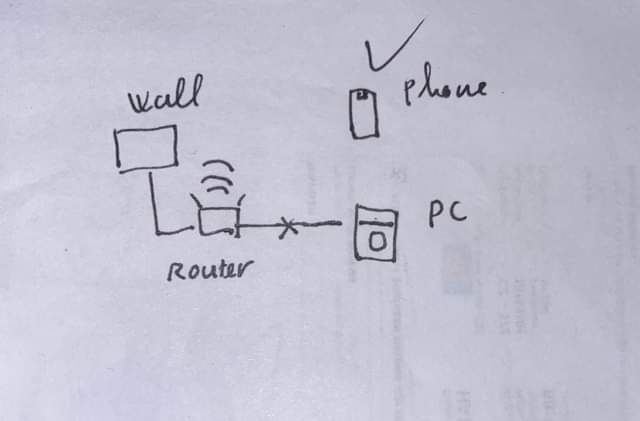 Wall
phone
PC
Router